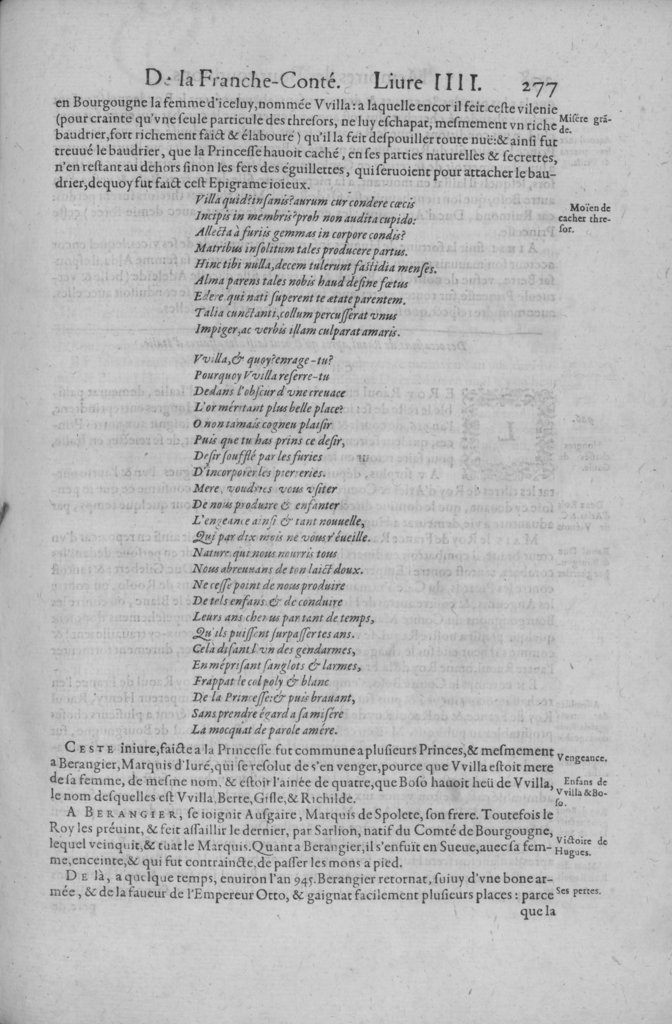 De la Franche-Conté. Liure IIII. 277
en Bourgougne la femme d'iceluy, nommée Vvilla: a laquelle encor il feit ceste vilenie
(pour crainte qu'vne seule particule des thresors, ne luy eschapat, mesmement vn riche
baudrier, fort richement faict & élabouré) qu'il la feit despouiller toute nuë: & ainsi fut
treuué le baudrier, que la Princesse hauoit caché, en ses parties naturelles & secrettes,
n'en restant au dehors sinon les fers des éguillettes, qui seruoient pour attacher le bau-
drier, dequoy fut faict cest Epigrame ioieux.
Misére grã-
de.
Moïen de
cacher thre-
sor.
Villa quid? insanis? aurum cur condere cæcis
Incipis in membris? proh non audita cupido:
Allecta à furiis gemmas in corpore condis?
Matribus insolitum tales producere partus.
Hinc tibi nulla, decem tulerunt fastidia menses.
Alma parens tales nobis haud desine fœtus
Edere qui nati superent te ætate parentem.
Talia cunctanti, collum percusserat vnus
Impiger, ac verbis illam culparat amaris.
Vvilla, & quoy? enrage-tu?
Pourquoy Vvilla reserre-tu
Dedans l'obscur d'vne creuace
L'or méritant plus belle place?
O non iamais cogneu plaisir
Puis que tu has prins ce desir,
Desir soufflé par les furies
D'incorporer les pierreries.
Mere, voudriez vous vsiter
De nous produire & enfanter
L'engeance ainsi & tant nouuelle,
Qui par dix mois ne vous r'éueille.
Nature, qui nous nourris tous
Nous abreuuans de ton laict doux.
Ne cesse point de nous produire
De tels enfans & de conduire
Leurs ans chenus par tant de temps,
Qu'ils puissent surpasser tes ans.
Celà disant l'vn des gendarmes,
En méprisant sanglots & larmes,
Frappat le col poly & blanc
De la Princesse: & puis brauant,
Sans prendre égard a sa misére
La mocquat de parole amére.
CESTE iniure, faicte a la Princesse fut commune a plusieurs Princes, & mesmement
a Berangier, Marquis d'Iuré, qui se resolut de s'en venger, pource que Vvilla estoit mere
de sa femme, de mesme nom, & estoit l'ainée de quatre, que Boso hauoit heü de Vvilla,
le nom desquelles est Vvilla, Berte, Gisle, & Richilde.
Vengeance.
Enfans de
Vvilla & Bo-
so.
A BERANGIER, se ioignit Ausgaire, Marquis de Spolete, son frere. Toutefois le
Roy les préuint, & feit assaillir le dernier, par Sarlion, natif du Comté de Bourgougne,
lequel veinquit, & tuat le Marquis. Quant a Berangier, il s'enfuit en Sueue, auec sa fem-
me, enceinte, & qui fut contraincte, de passer les mons a pied.
Victoire de
Hugues.
DE là, a quelque temps, enuiron l'an 945. Berangier retornat, suiuy d'vne bone ar-
mée, & de la faueur de l'Empereur Otto, & gaignat facilement plusieurs places: parce
Ses pertes.
que la